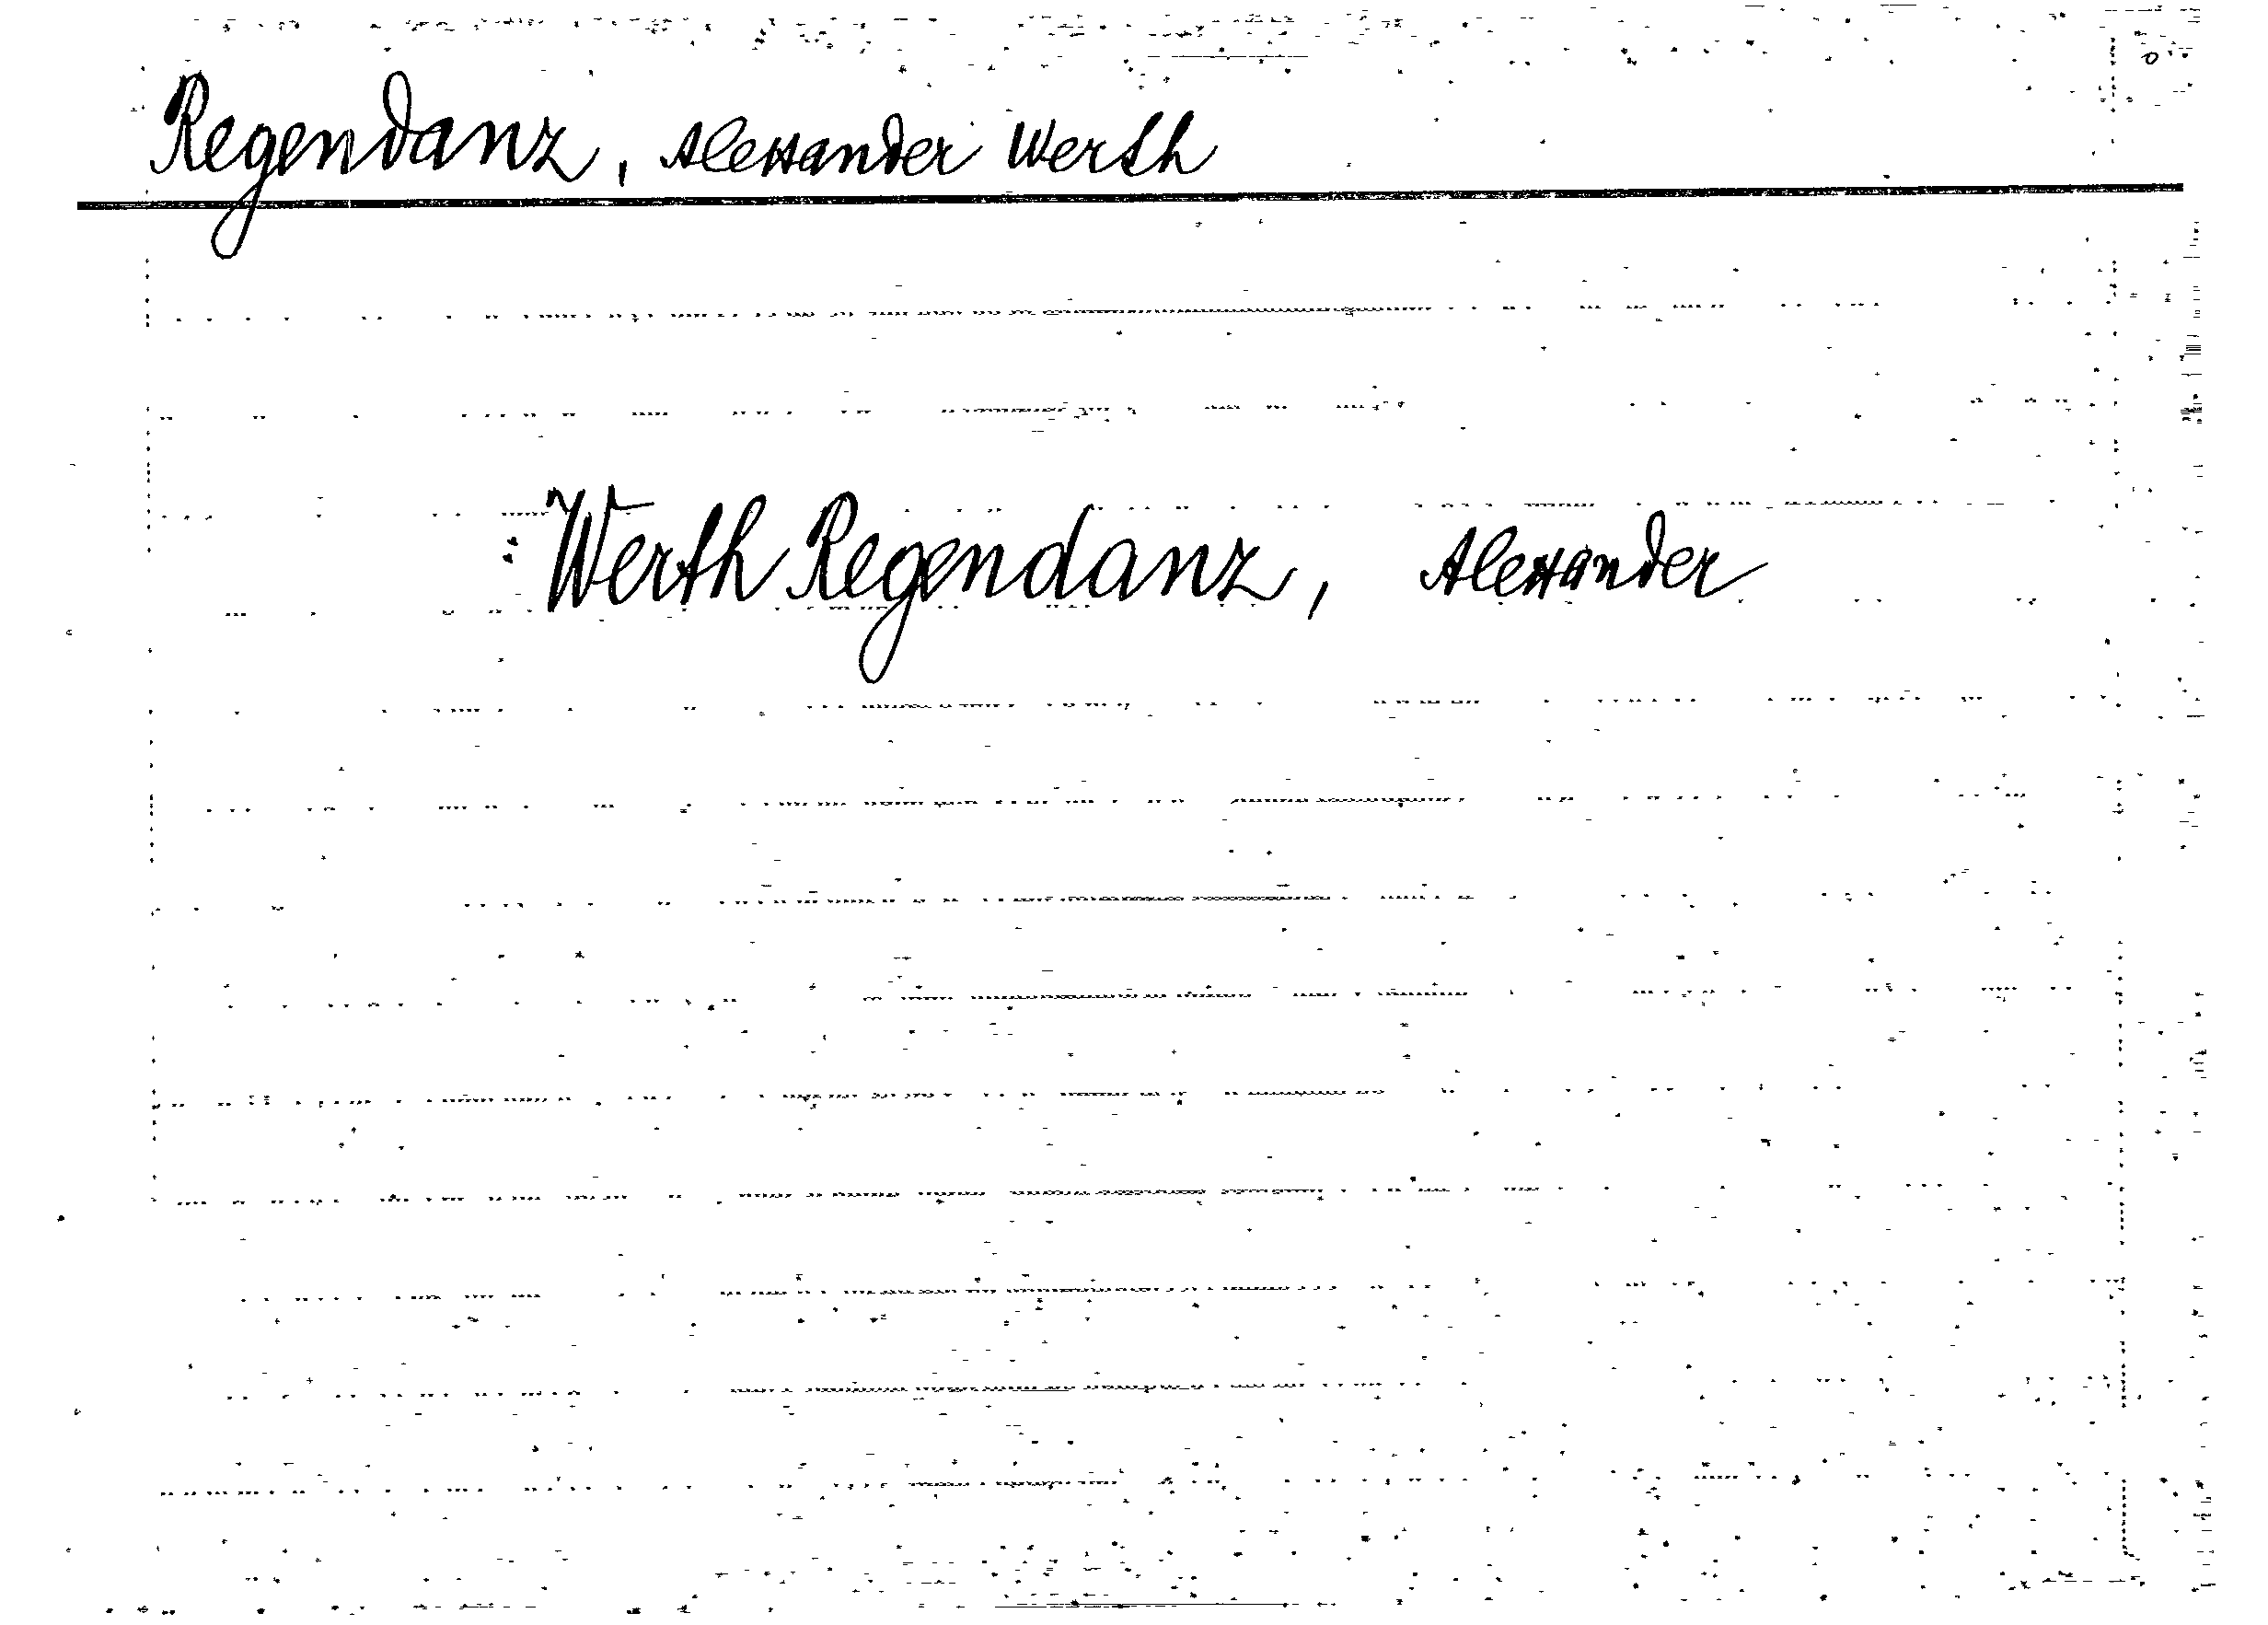 Regendanz, Alexander Werth
: Werth Regendanz, Alexander